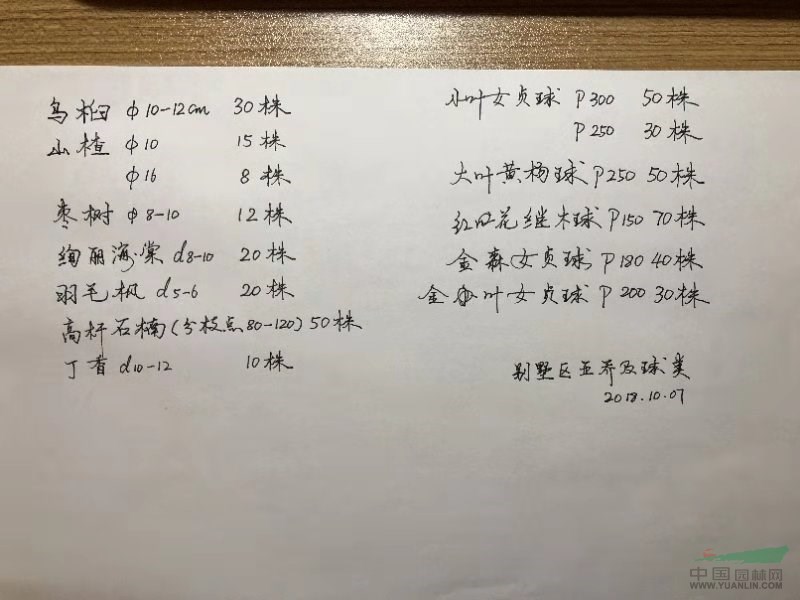 乌桕 φ10-12cm 30株
山楂 φ10 15株
φ16 8株
枣树 φ8-10 12株
绚丽海棠 d8-10 20株
羽毛枫 d5-6 20株
高杆石楠(分枝点80-120) 50株
丁香 d10-12 10株
小叶女贞球 P300 50株
P250 30株
大叶黄杨球 P250 50株
红口花继木球 P150 70株
金森(女贞球) P180 40株
金叶女贞球 P200 30株
别墅区亚乔及球类
2018.10.07
中国园林网
WWW.YUANLIN.COM